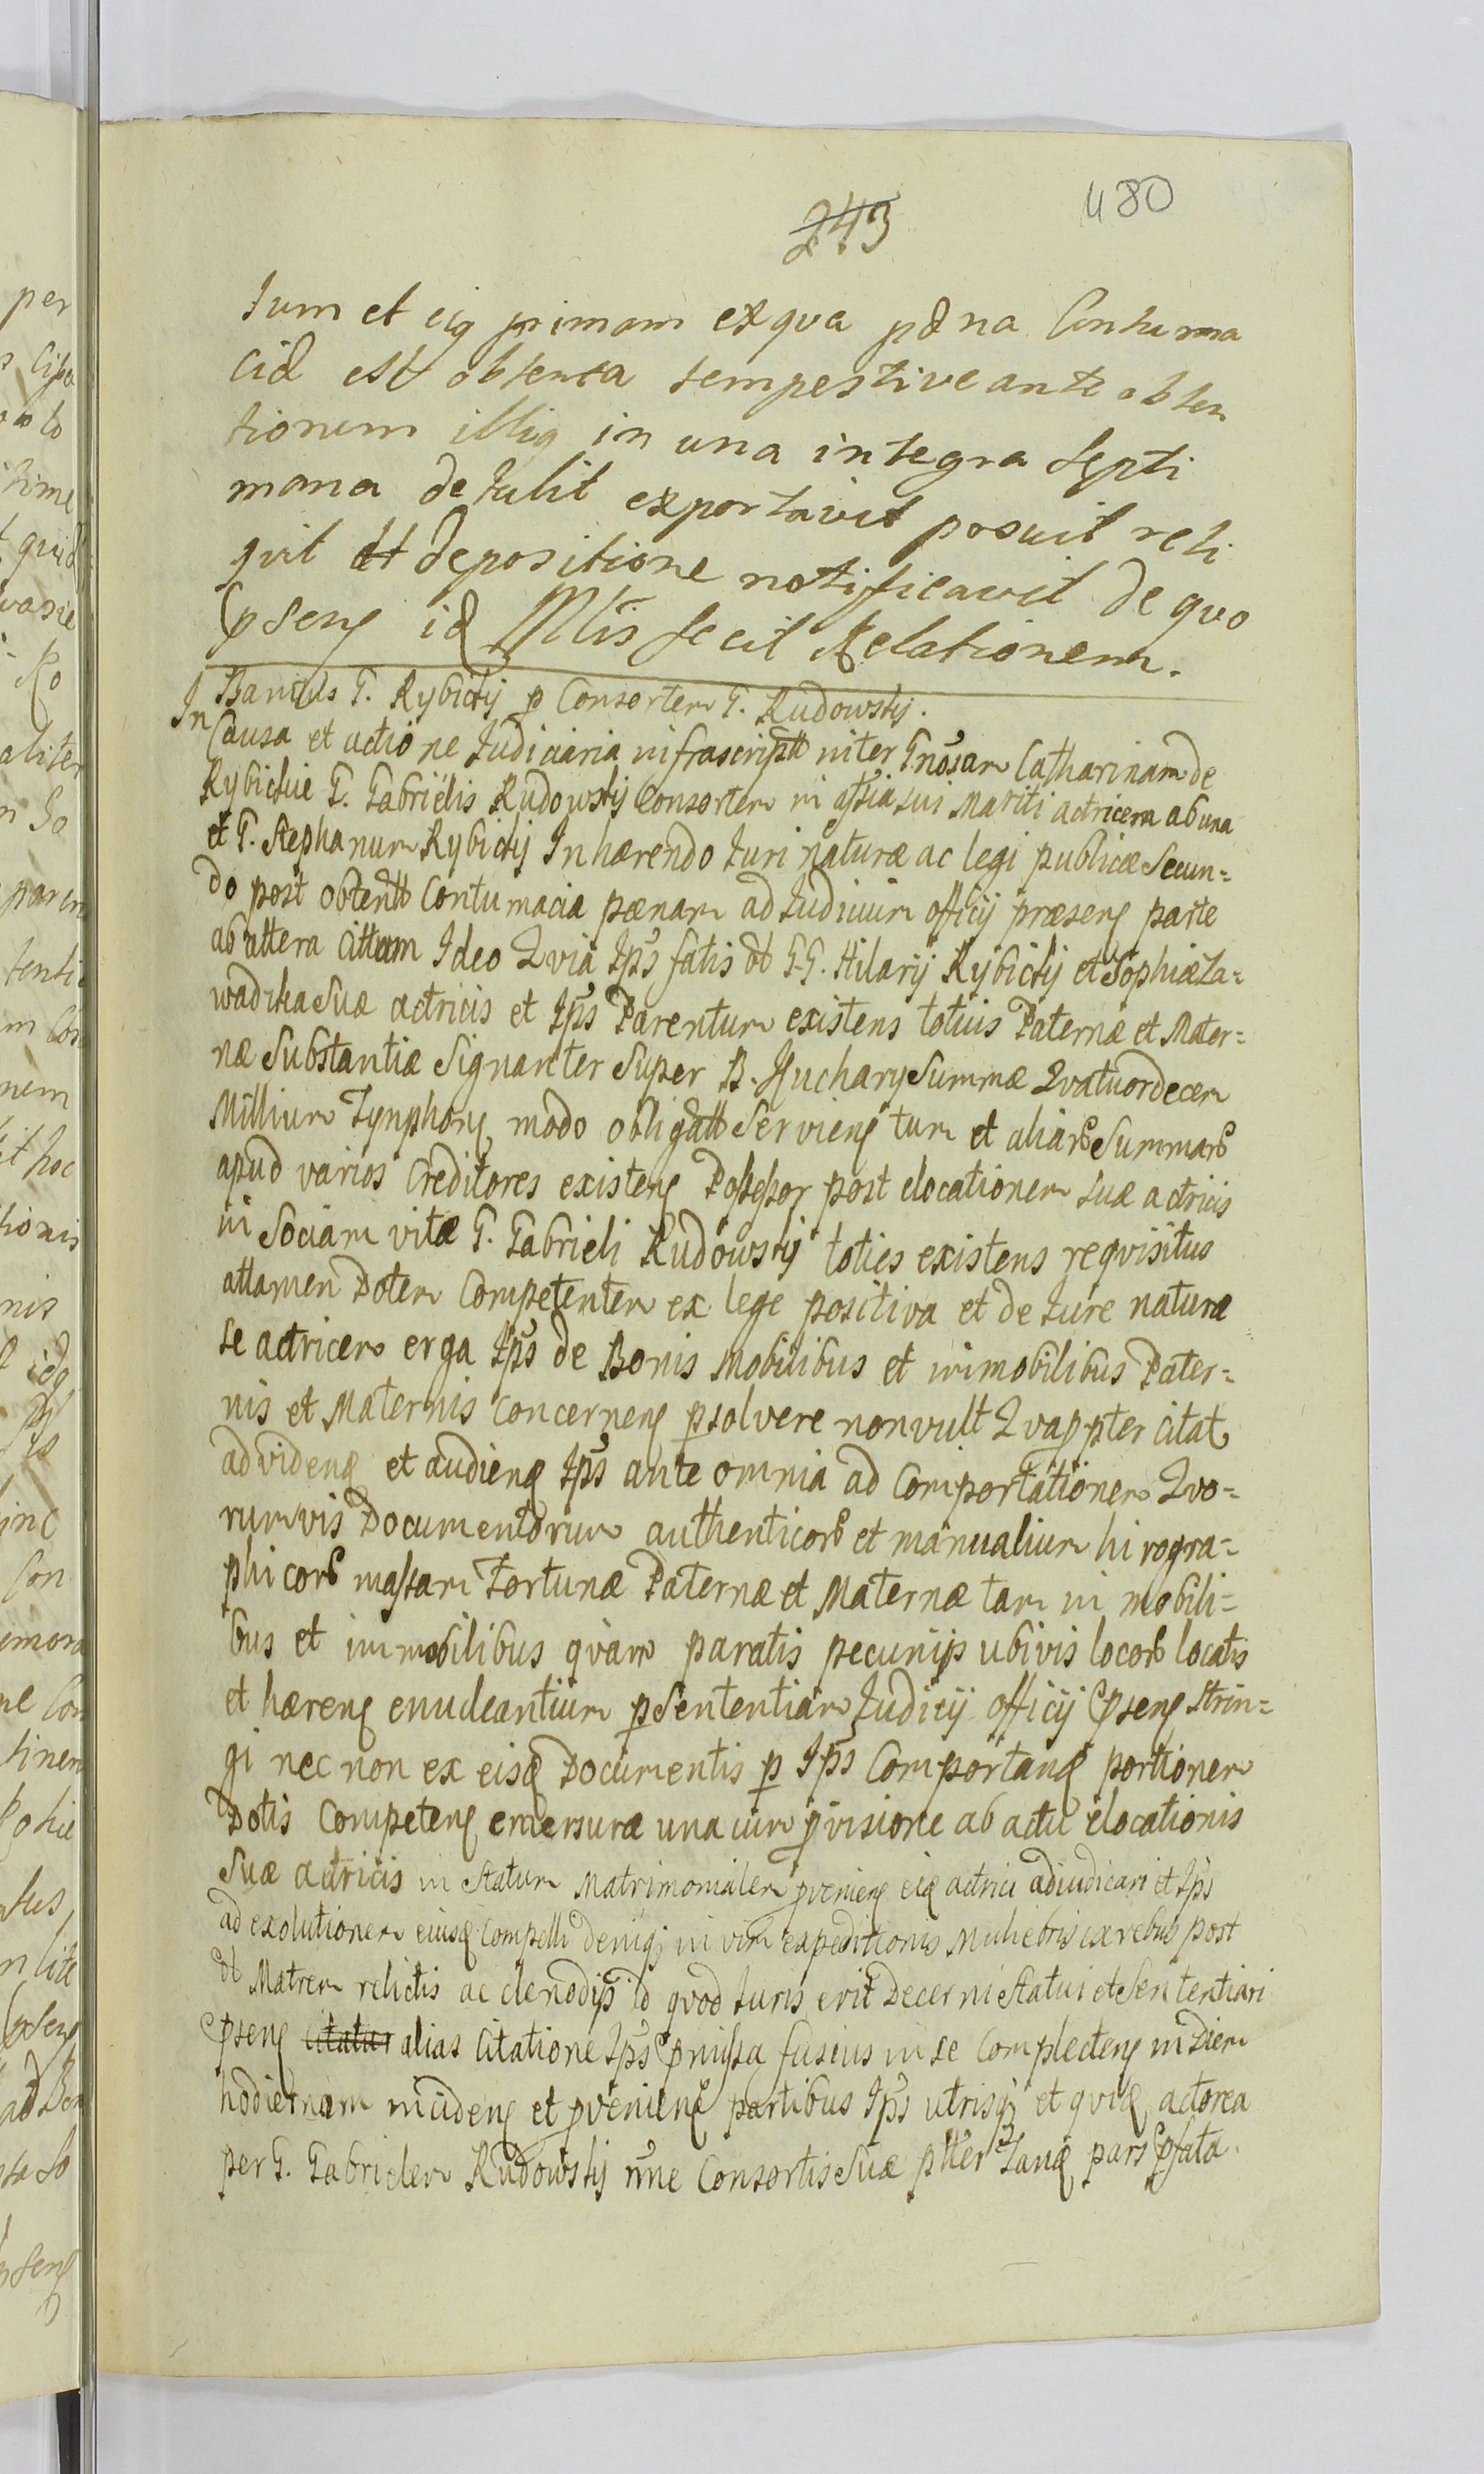 480
243
tum et eiq primam ex qva pæna Contuma
ciæ est obtenta tempestive ante obten
tionem illiq in una integra septi
mana detulit exportavit posuit reli
qvit et depositione notificavit de qvo
id Mlis fecit Relationem.
Banitus G. Rybicky p Consortem G. Rudowsky.
In Causa et actione Judiciaria infrascriptt inter Gnosam Catharinam de
Rybickie G. Gabrielis Rudowsky Consortem in assia sui Mariti actricem ab una
et G. Stephanum Rybicky Inhærendo Juri naturæ ac legi publicæ Secun=
do post obtentt Contumacia pænam ad Judicium officij præsens parte
ab altera Cittam Ideo Qvia Ips fatis olt G.G. Hilarij Rybicky et Sophiæ Za=
wadzka Suæ actricis et Ips Parentum existens totius Paternæ et Mater=
næ Substantiæ Signanter Super B. Kuchary Summæ Qvatuordecem
Millium Tynphons modo obligatt Serviens tum et aliars Summars
apud varios Creditores existens Possessor post elocationem suæ actricis
in Sociam vitæ G. Gabrieli Rudowsky toties existens reqvisitus
attamen Dotem Competentem ex lege positiva et de Jure naturæ
se actricem erga Ips de Bonis Mobilibus et immobilibus Pater=
nis et Maternis concernens psolvere non vult Qvappter citat
ad videnq et audienq Ips ante omnia ad Comportationem Qvo=
rumvis Documentorum authenticors et manualium hirogra=
phicors massam Fortunæ Paternæ et Maternæ tam in mobili=
bus et immobilibus qvam paratis pecunijs ubivis locors locatis
et hærens enucleantium p Sententiam Judicij officij psens strin=
gi nec non ex eisq Documentis p Ips Comportanq portionem
Dotis Competens emersuræ una cum pvisione ab actu elocationis
Suæ actricis in Statum Matrimonialem pveniens eiq actrici adiudicari et Ips
ad exolutionem eiusq Compelli deniq in vim expeditionis Muliebris ex rebus post
olt Matrem relictis ac clenodijs id qvod Juris erit Decerni Statui et Sententiari
psens citatur alias Citatione Ips pmissa fusius in se Complectens in Diem
hodiernam incidens et pveniens partibus Ips utrisq et qvidq actorea
per G. Gabrielem Rudowsky nne Consortis Suæ ptter Janq pars pfata